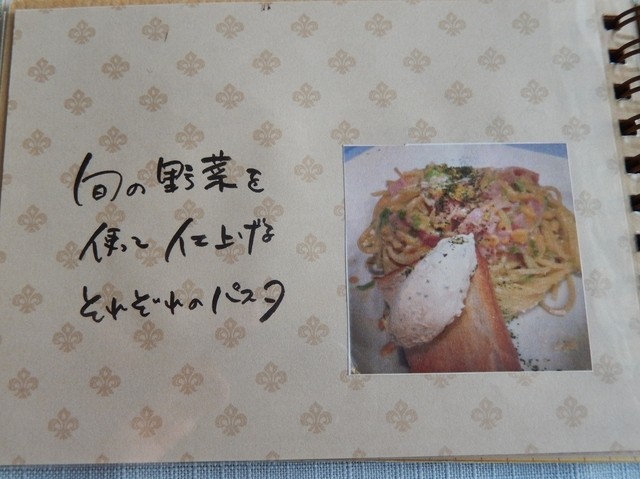 旬の野菜を
使って仕上げる
それぞれのパスタ